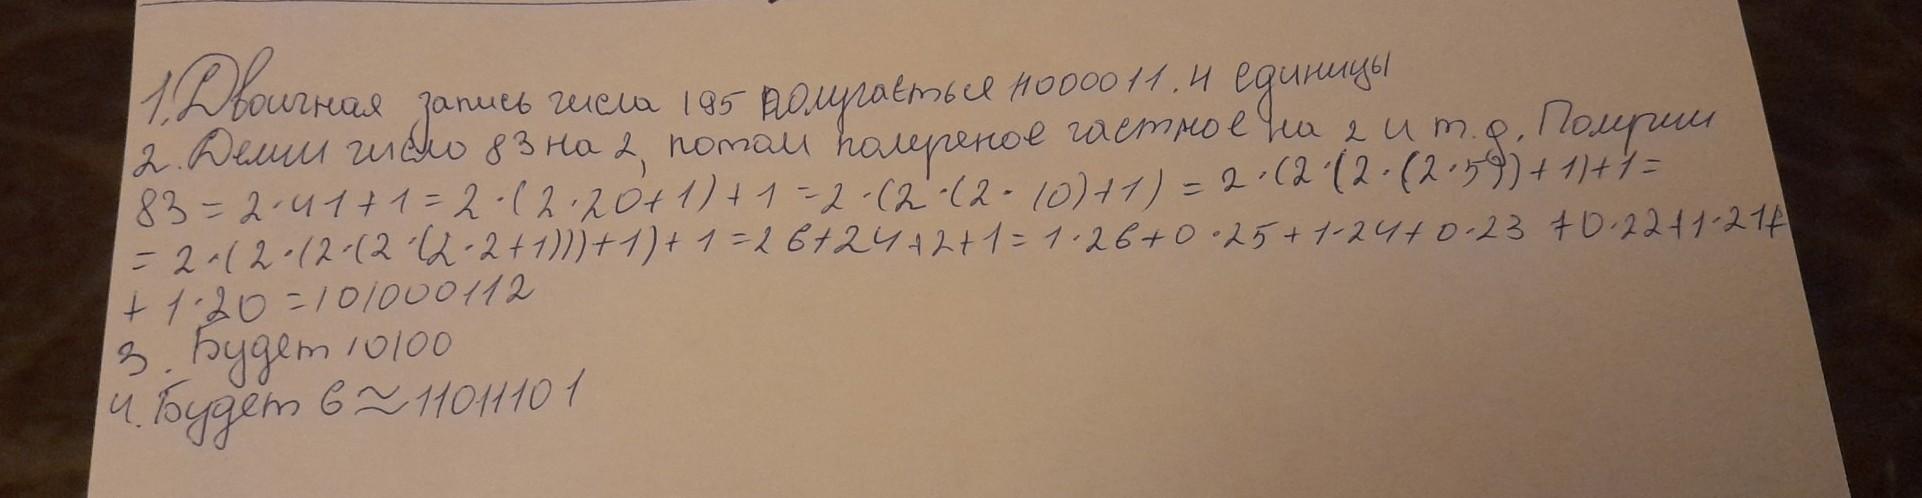 1. Двоичная запись числа 195 получається 11000011. 4 единицы
2. Делим число 83 на 2, потом полученое частное на 2 и т.д. Получим
83 = 2·41+1 = 2·(2·20+1)+1 = 2·(2·(2·10)+1) = 2·(2·(2·(2·5))+1)+1 =
= 2·(2·(2·(2·(2·2+1)))+1)+1 = 26+24+2+1 = 1·26+0·25+1·24+0·23+0·22+1·21+
+ 1·20 = 101000112
3. Будет 10100
4. Будет 6 ≈ 11011101